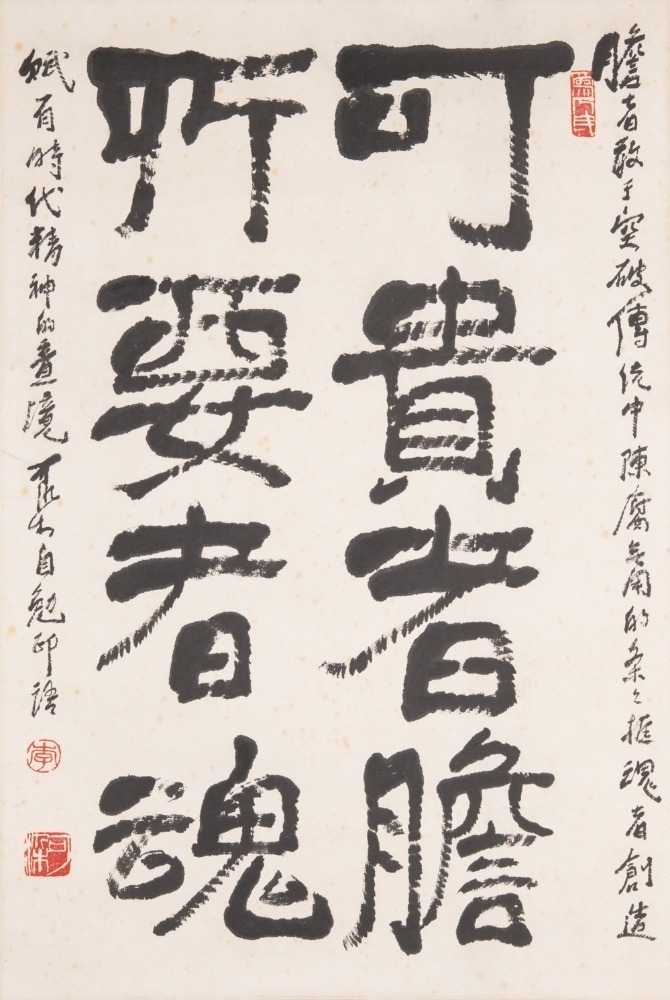 膽者敢于突破傳統中陳腐無用的條々框魂者創造
可貴者膽
所要者魂
賦有時代精神的意境可染自勉印語
李
可染